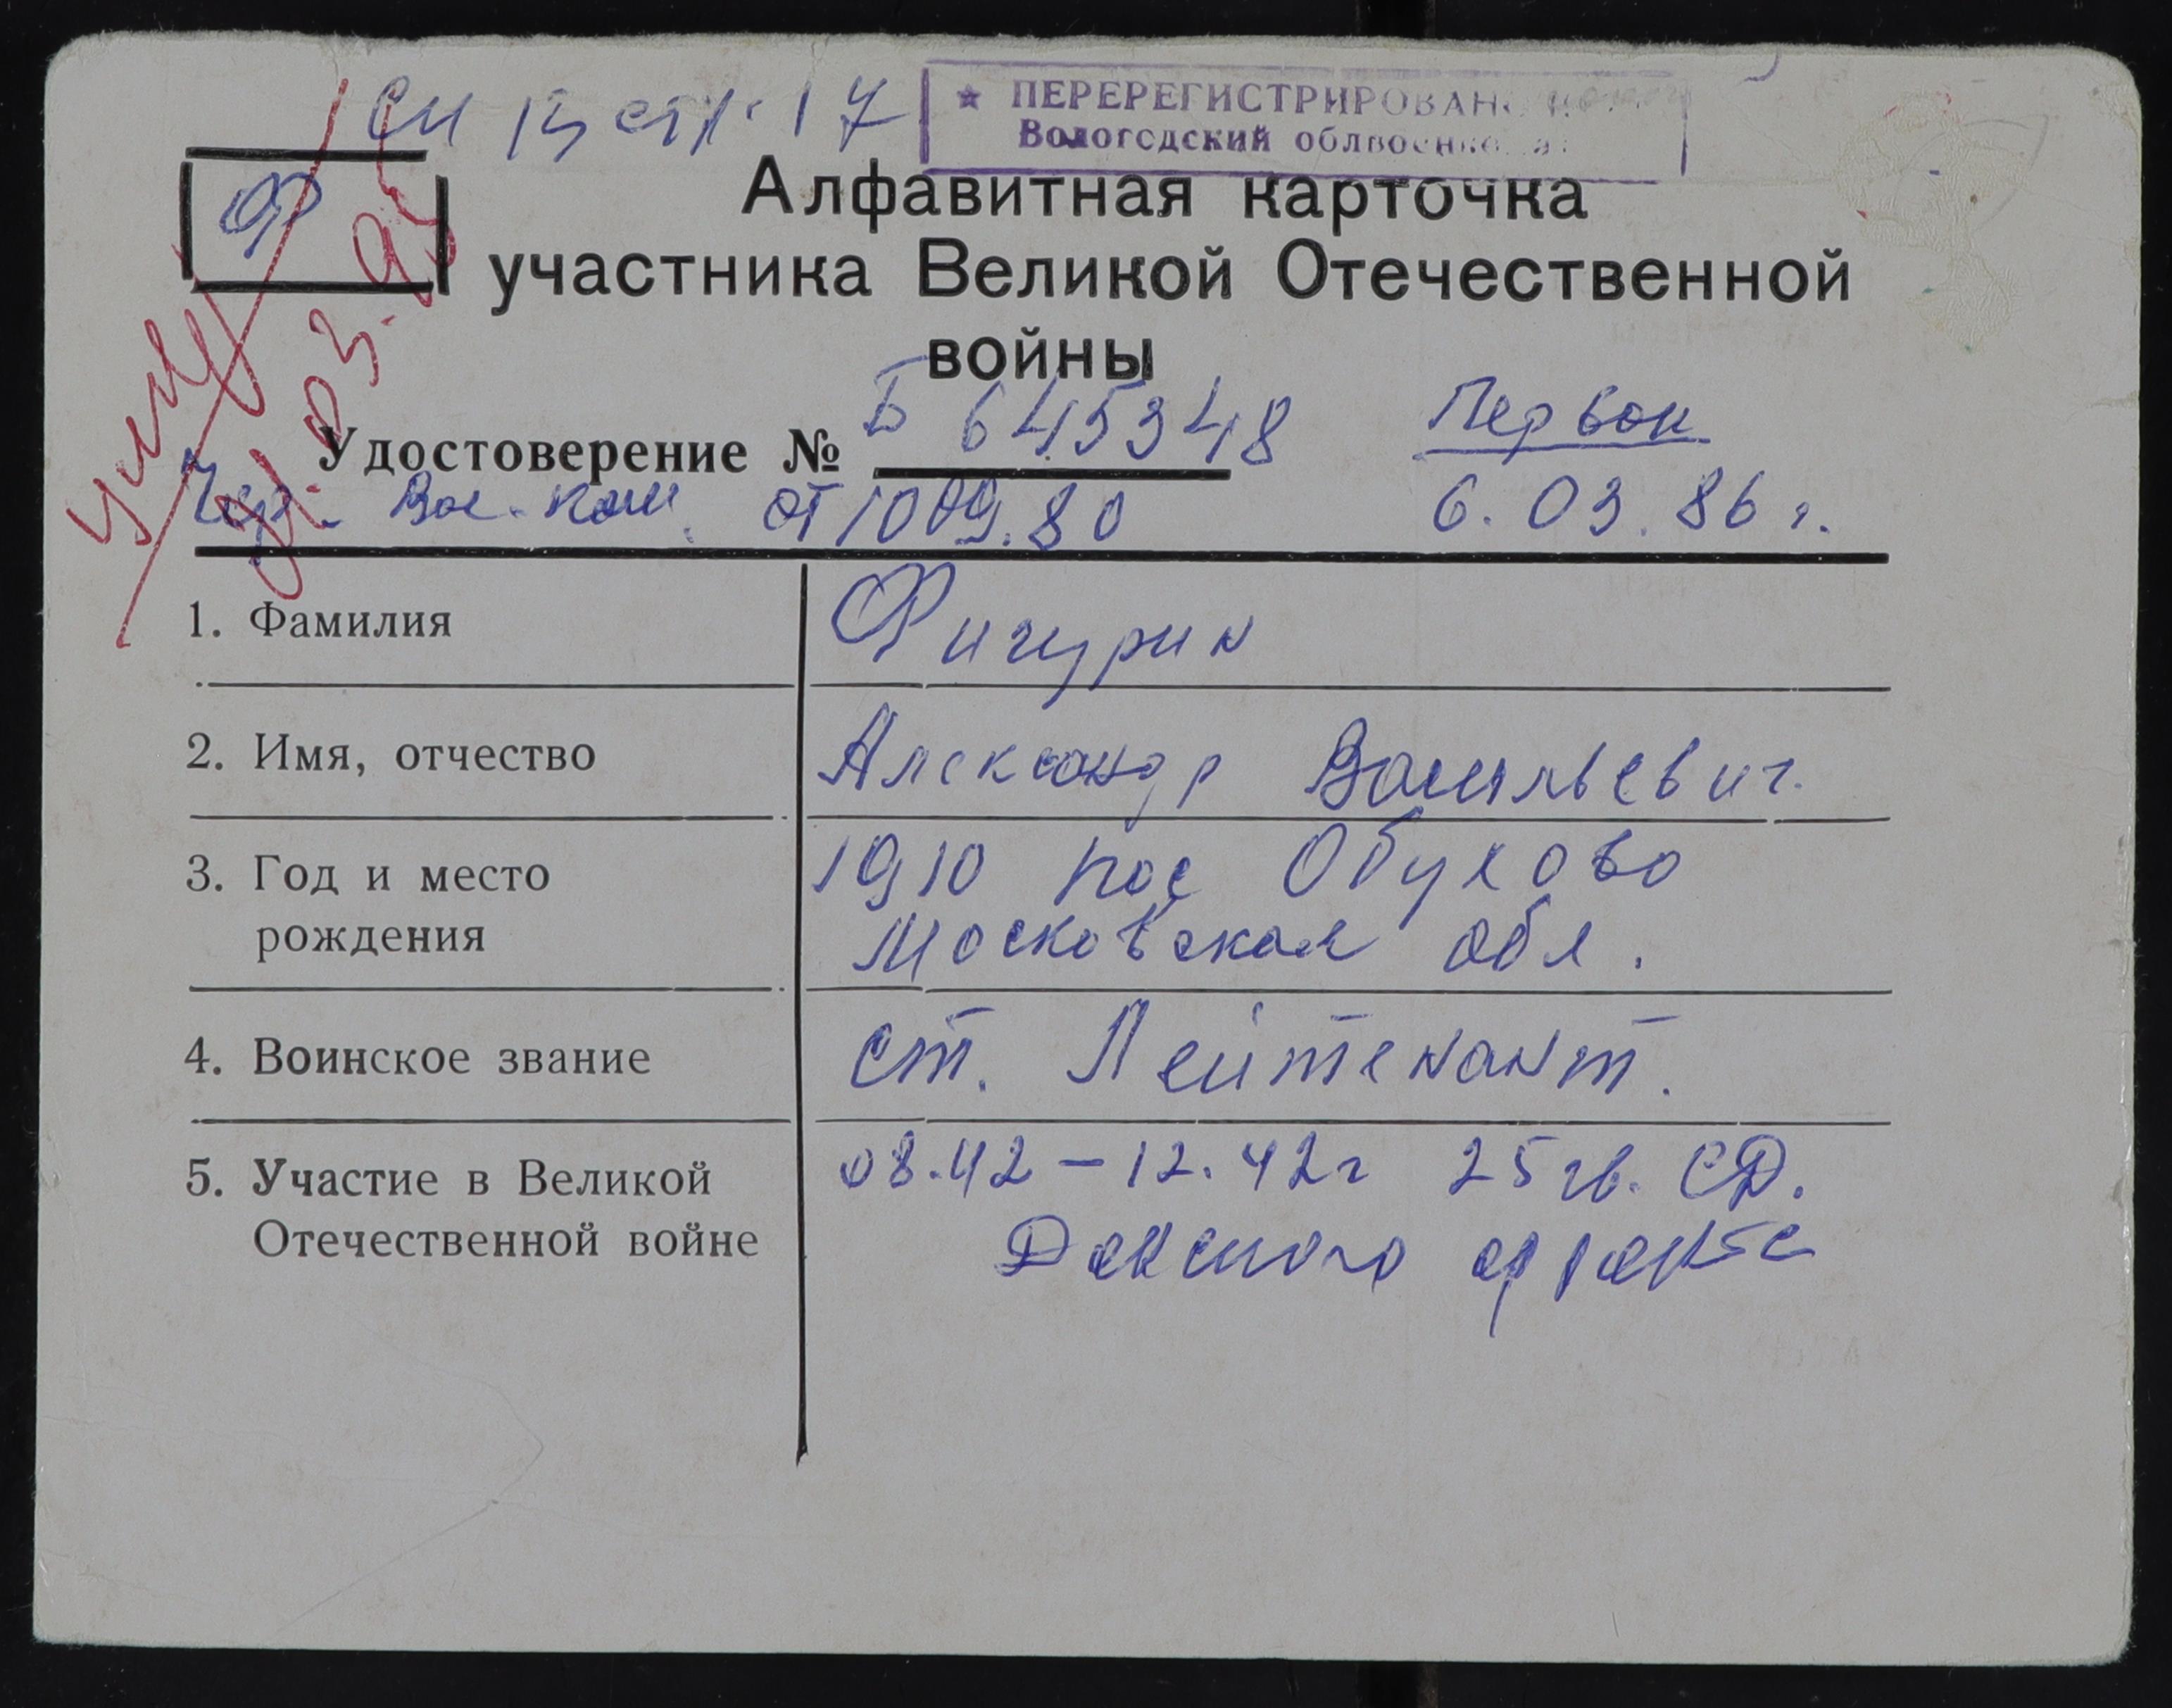 стр. 17
★ ПЕРЕРЕГИСТРИРОВАН
Вологодский облвоенко
Ф
Алфавитная карточка
участника Великой Отечественной
войны
Удостоверение № Б 645348
Первом
Чер. Вое. ком. от 10 09.80
6.03.86 г.
умер
03.95
1. Фамилия
Фигурин
2. Имя, отчество
Александр Васильевич.
3. Год и место
рождения
1910 пос Обухово
Московская обл.
4. Воинское звание
ст. Лейтенант.
5. Участие в Великой
Отечественной войне
08.42 – 12.42г 25 гв. СД.
Донского фронта